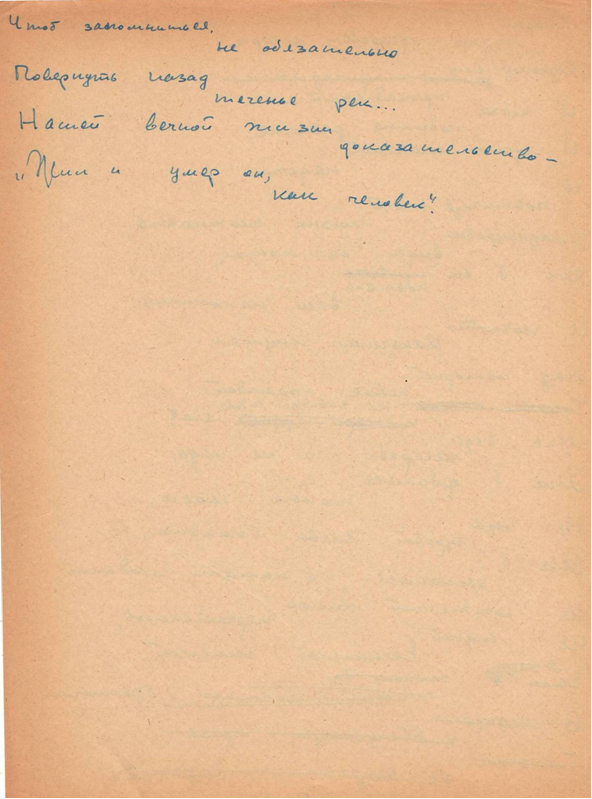 Чтоб запомниться,
не обязательно
Повернуть назад
теченье рек...
Нашей вечной жизни
доказательство –
„Жил и умер он,
как человек".